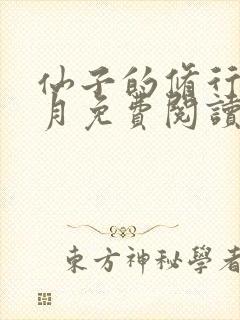 仙子的脩行
月免費閱讀
東方神秘學者